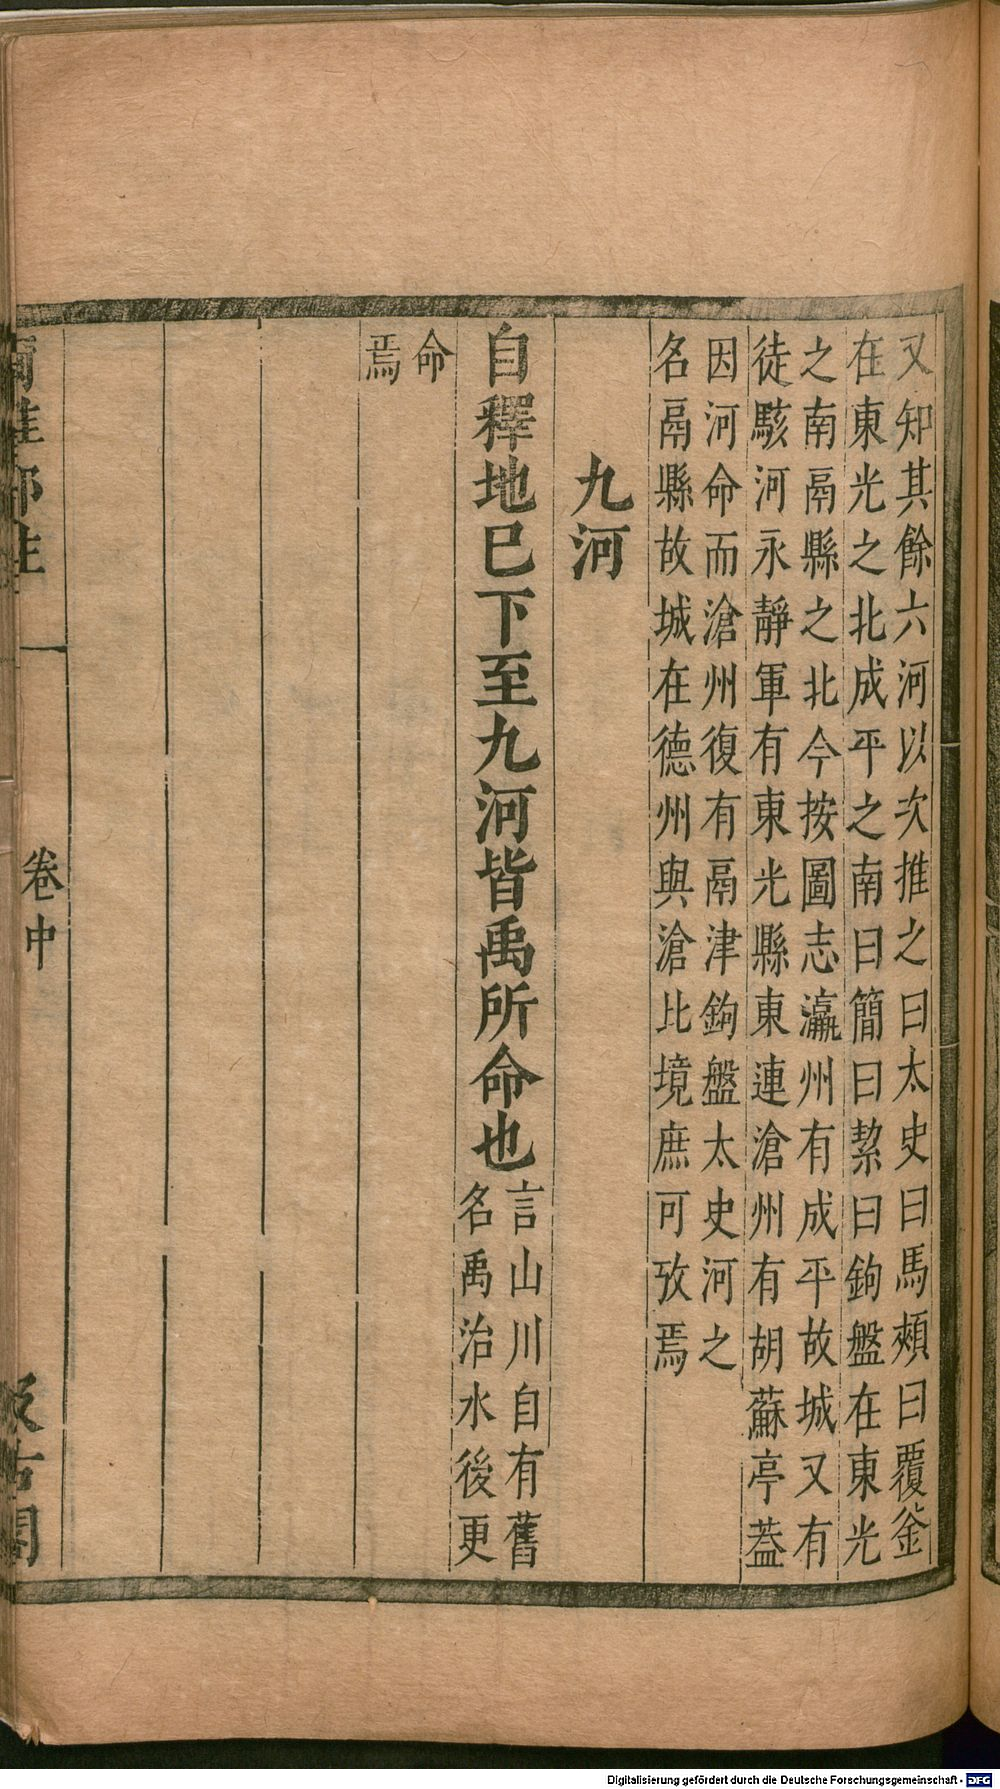 又知其餘六河以次推之曰太史曰馬頰曰覆釜
在東光之北成平之南曰簡曰絜曰鉤盤在東光
之南鬲縣之北今按圖志瀛州有成平故城又有
徒駭河永靜軍有東光縣東連滄州有胡蘇亭葢
因河命而滄州復有鬲津鉤盤太史河之
名鬲縣故城在德州與滄比境庶可攷焉
九河
自釋地已下至九河皆禹所命也
言山川自有舊
名禹治水後更
命
焉
爾雅鄭注
卷中
汲古閣
Digitalisierung gefördert durch die Deutsche Forschungsgemeinschaft - DFG